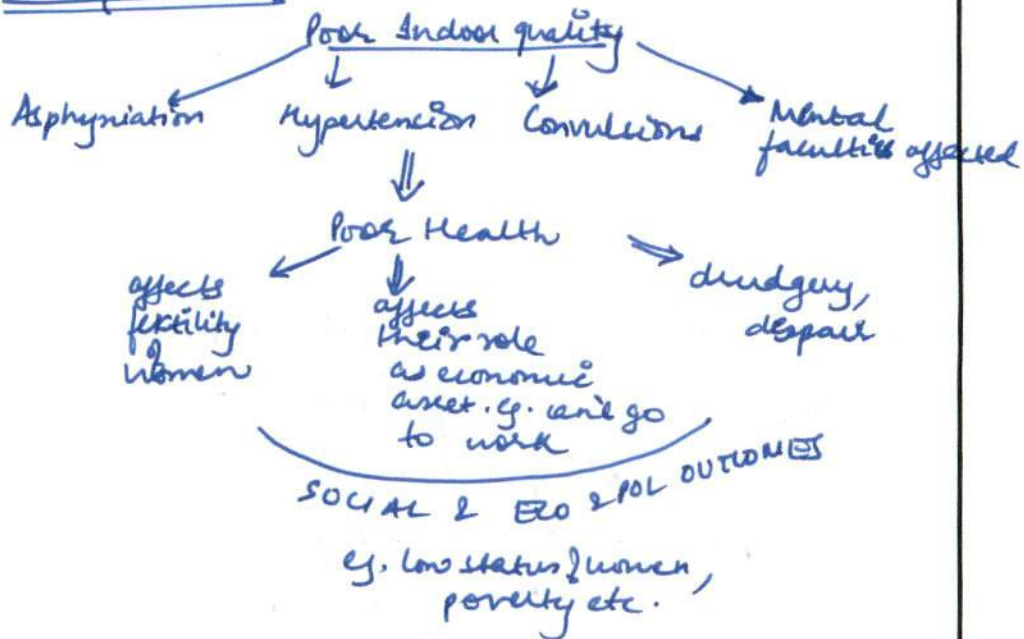 Poor Indoor quality
Asphyniation
Hypertencion
Convulsions
Mental
faculties affected
Poor Health
affects
fertility
of
women
affects
their role
as economic
asset. eg. can't go
to work
drudgery,
despair
SOCIAL & ECO & POL OUTCOMES
eg. low status of women,
poverty etc.